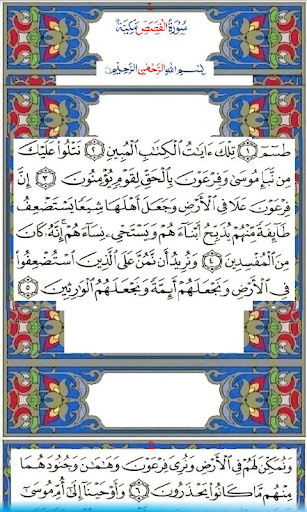 1
سُورَةُ القَصَصِ مَكِيَّة
بِسْمِ اللهِ الرَّحْمٰنِ الرَّحِيمِ
طسٓمٓ ١ تِلْكَ ءَايَٰتُ ٱلْكِتَٰبِ ٱلْمُبِينِ ٢ نَتْلُوا۟ عَلَيْكَ
مِن نَّبَإِ مُوسَىٰ وَفِرْعَوْنَ بِٱلْحَقِّ لِقَوْمٍ يُؤْمِنُونَ ٣ إِنَّ
فِرْعَوْنَ عَلَا فِى ٱلْأَرْضِ وَجَعَلَ أَهْلَهَا شِيَعًا يَسْتَضْعِفُ
طَآئِفَةً مِّنْهُمْ يُذَبِّحُ أَبْنَآءَهُمْ وَيَسْتَحْىِۦ نِسَآءَهُمْ إِنَّهُۥ كَانَ
مِنَ ٱلْمُفْسِدِينَ ٤ وَنُرِيدُ أَن نَّمُنَّ عَلَى ٱلَّذِينَ ٱسْتُضْعِفُوا۟
فِى ٱلْأَرْضِ وَنَجْعَلَهُمْ أَئِمَّةً وَنَجْعَلَهُمُ ٱلْوَٰرِثِينَ ٥
2
وَنُمَكِّنَ لَهُمْ فِى ٱلْأَرْضِ وَنُرِىَ فِرْعَوْنَ وَهَٰمَٰنَ وَجُنُودَهُمَا
مِنْهُم مَّا كَانُوا۟ يَحْذَرُونَ ٦ وَأَوْحَيْنَآ إِلَىٰٓ أُمِّ مُوسَىٰٓ